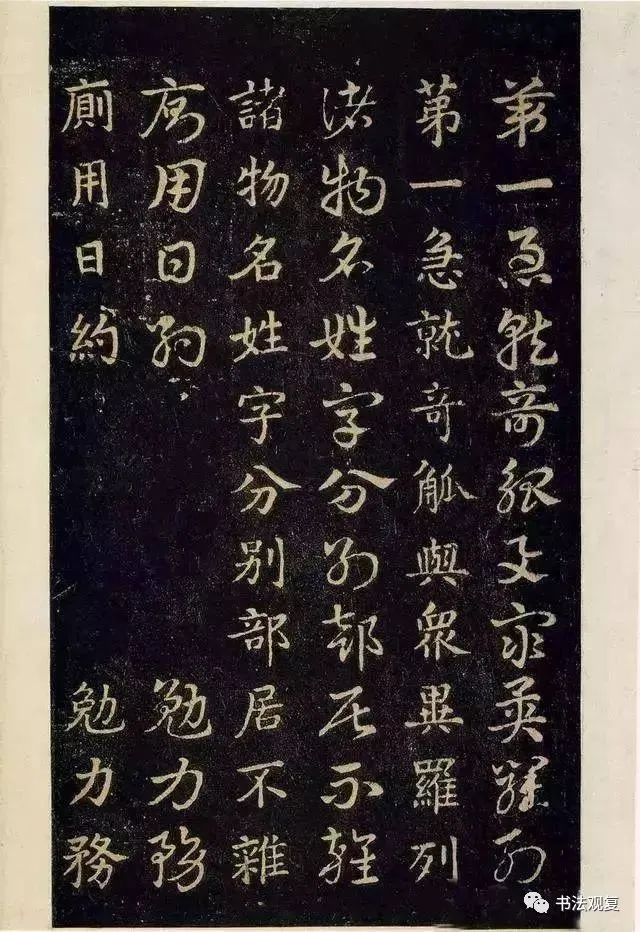 苐一急就奇觚與眾異羅列
苐一急就奇觚與眾異羅列
諸物名姓字分別部居不雜
諸物名姓字分別部居不雜
廁用日約 勉力務
廁用日約 勉力務
书法观复